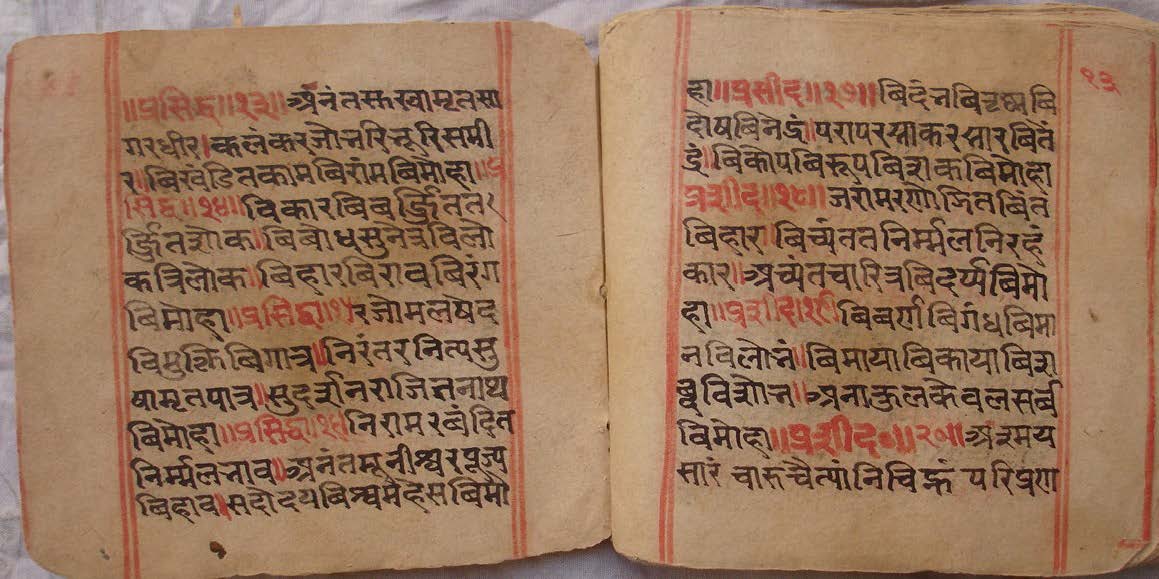 ॥प्रसिद्ध॥१३॥अनंतसुखामृतसा
गरधीर।कलंकरजोनरिभूरिसमी
र।बिखंडितकामबिरांमबिमोहा॥प्र
सिद्ध॥१४॥विकारबिबर्ज्जितत
र्ज्जितशोक।बिबोधसुनेत्रविलो
कत्रिलोक।बिहारबिरावबिरंग
बिमोहा॥प्रसिद्ध॥१५रजोमलषेद
विमुक्तिबिगात्र॥निरंतरनित्यसु
षामृतपात्र॥सुदर्शनराजितनाथ
बिमोहा॥प्रसिद्ध॥१६॥निरामरबंदित
निर्म्मलभाव॥अनंतमूनीश्वरपूज्य
बिहाव।सदोदयबिश्वमहेसबिमो
हा॥प्रसीद॥१७॥बिदंनबितृष्णबि
दोषबिनेद्रं।परापरसाकरसारबितं
द्रं।बिकोपबिरूपबिशकबिमोहा
प्रशीद॥१८॥जरांमरणोजितबित
बिहार।बिच्यंततनिर्म्मलनिरहं
कार॥अच्यंतचारित्रबिदर्प्पबिमो
हा॥प्रशीद॥१९॥बिबर्णबिगंधबिमा
नविलोनं।बिमायाबिकायाबिश
ब्दविशोन॥अनाकुलकेवलसर्ब
विमोहा॥प्रशीद०॥२०॥असमय
सारं चारुचैत्यांनिचिह्नं परिपुणा
१३